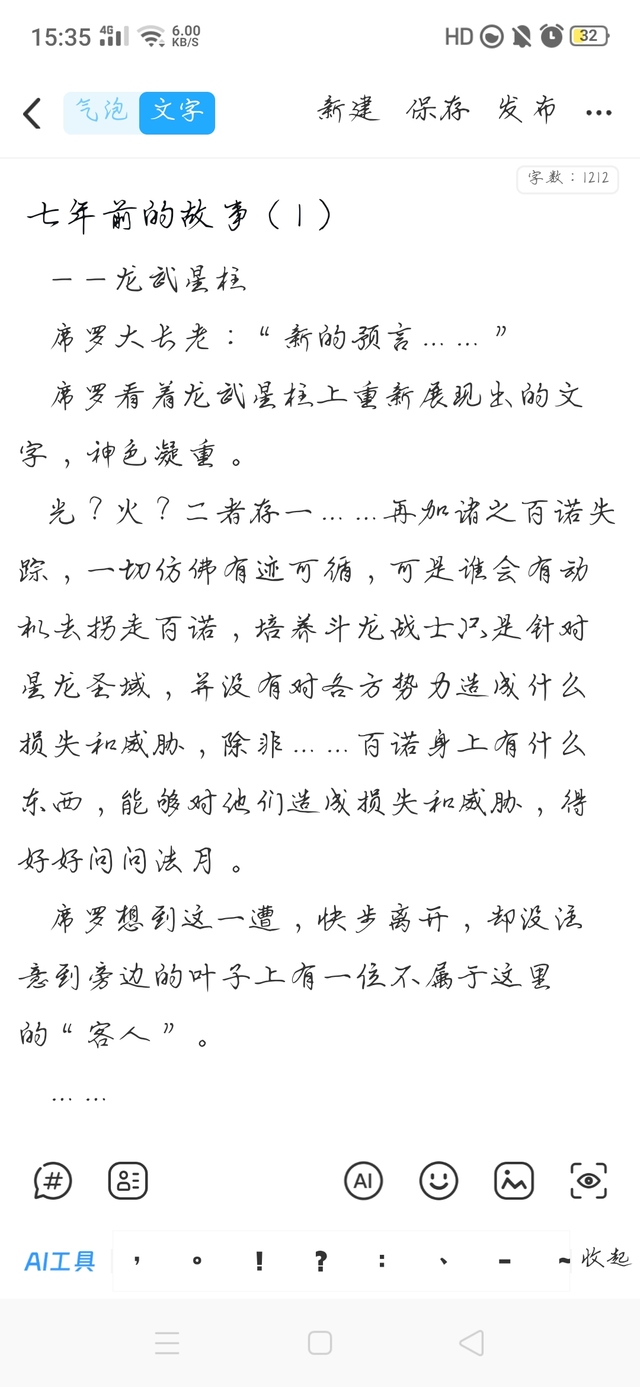 15:35 4G 6.00 KB/S HD 32
气泡 文字 新建 保存 发布 ...
字数：1212
七年前的故事（1）
一一龙武星柱
席罗大长老：“新的预言……”
席罗看着龙武星柱上重新展现出的文
字，神色凝重。
光？火？二者存一……再加诸之百诺失
踪，一切仿佛有迹可循，可是谁会有动
机去拐走百诺，培养斗龙战士只是针对
星龙圣域，并没有对各方势力造成什么
损失和威胁，除非……百诺身上有什么
东西，能够对他们造成损失和威胁，得
好好问问法月。
席罗想到这一遭，快步离开，却没注
意到旁边的叶子上有一位不属于这里
的“客人”。
……
# AI
AI工具 ， 。 ！ ？ ： 、 - ~ 收起